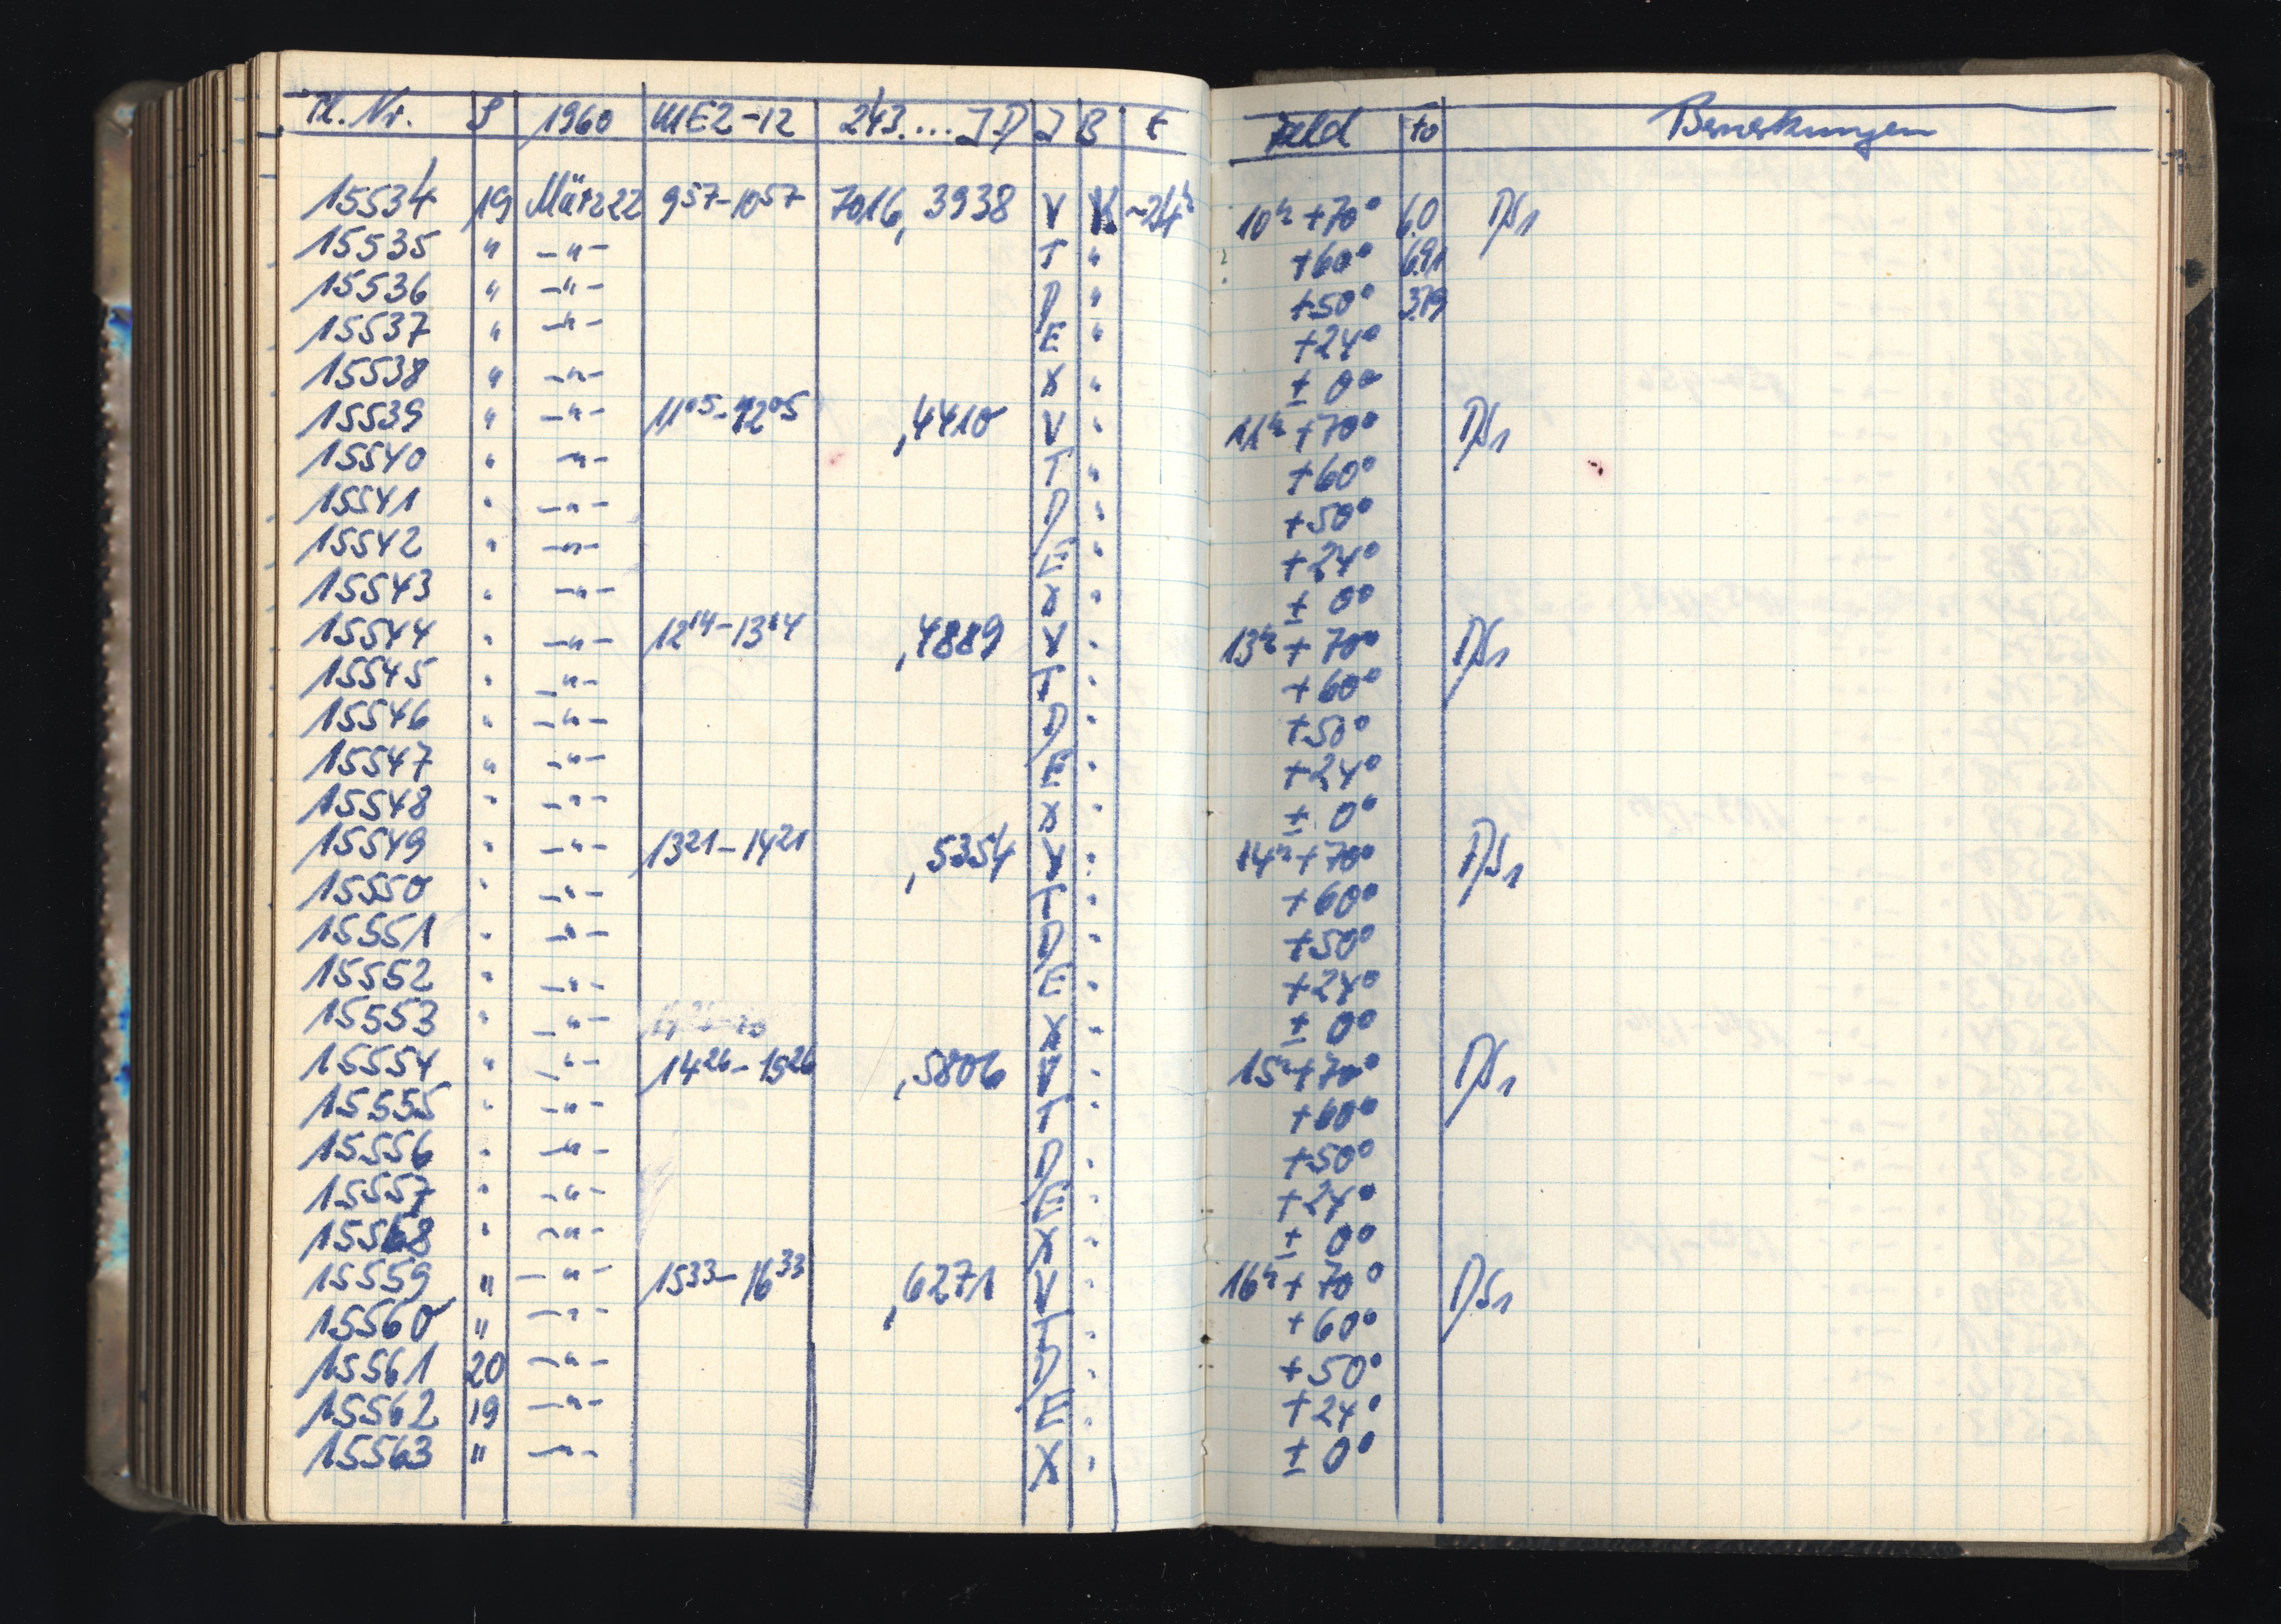 Pl. Nr. S 1960 MEZ-12 243.... J.D J B t Feld to Bemerkungen
15534 19 März 22 9 57 - 10 57 7016, 3938 V K ~24h 10h +70° 6.0 DS1
15535 " -"- T " +60° 6.91
15536 " -"- D " +50° 3.79
15537 " -"- E " +24°
15538 " -"- X " ± 0°
15539 " -"- 11 05 - 12 05 ,4410 V " 11h +70° DS1
15540 " -"- T " +60°
15541 " -"- D " +50°
15542 " -"- E " +24°
15543 " -"- X " ± 0°
15544 " -"- 12 14 - 13 14 ,4889 V " 13h +70° DS1
15545 " -"- T " +60°
15546 " -"- D " +50°
15547 " -"- E " +24°
15548 " -"- X " ± 0°
15549 " -"- 13 21 - 14 21 ,5354 V " 14h +70° DS1
15550 " -"- T " +60°
15551 " -"- D " +50°
15552 " -"- E " +24°
15553 " -"- X " ± 0°
15554 " -"- 14 26 - 15 26 ,5806 V " 15h +70° DS1
15555 " -"- T " +60°
15556 " -"- D " +50°
15557 " -"- E " +24°
15558 " -"- X " ± 0°
15559 " -"- 15 33 - 16 33 ,6271 V " 16h +70° DS1
15560 " -"- T " +60°
15561 20 -"- D " +50°
15562 19 -"- E " +24°
15563 " -"- X " ± 0°